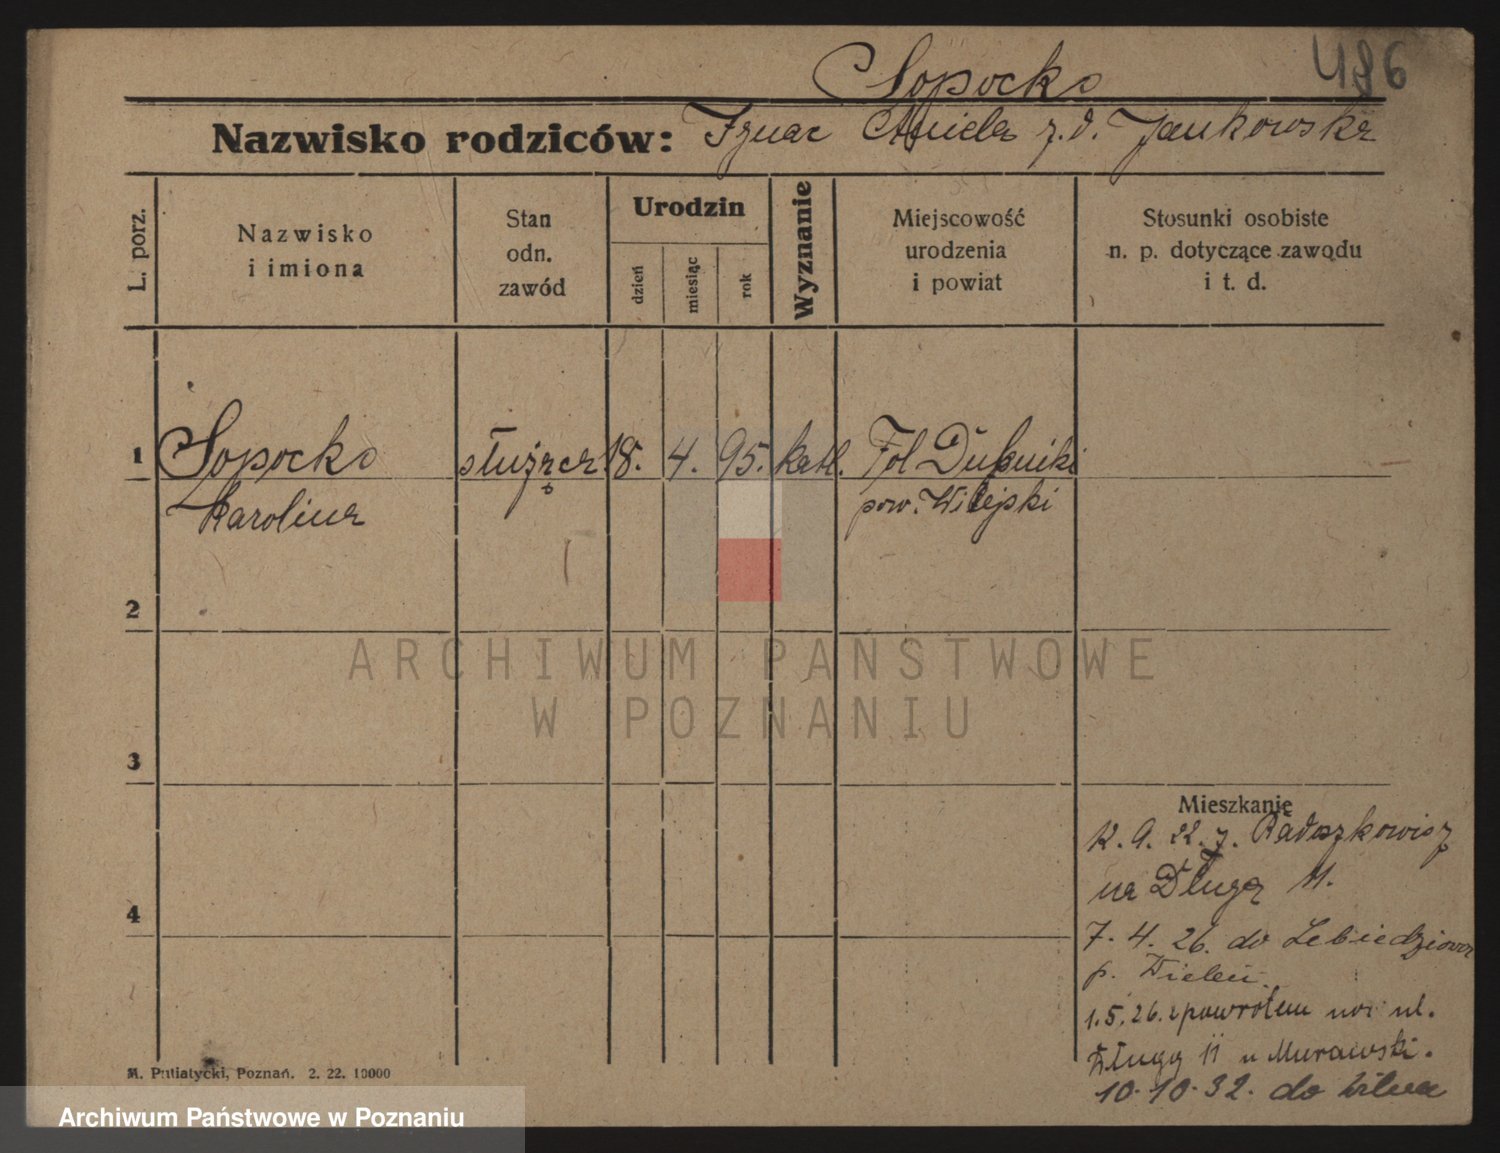 Sopocko
486
Nazwisko rodziców: Ignac Aniela z.d. Jankowska
L. porz.
Nazwisko
i imiona
Stan
odn.
zawód
Urodzin
dzień
miesiąc
rok
Wyznanie
Miejscowość
urodzenia
i powiat
Stosunki osobiste
n. p. dotyczące zawodu
i t. d.
1 Sopocko służąca 18. 4. 95. katl. Fol Dubniki
Karolina pow. Wilejski
2
3
4
Mieszkanie
12. 9. 22. z. Radoszkowicz
na Długą 11.
7. 4. 26. do Lebiedziowa
p. Wieleń.
1. 5. 26. z powrotem na ul.
Długą 11 u Murawski.
10. 10. 32. do Wilna
M. Putiatycki, Poznań. 2. 22. 10000
ARCHIWUM PAŃSTWOWE
W POZNANIU
Archiwum Państwowe w Poznaniu